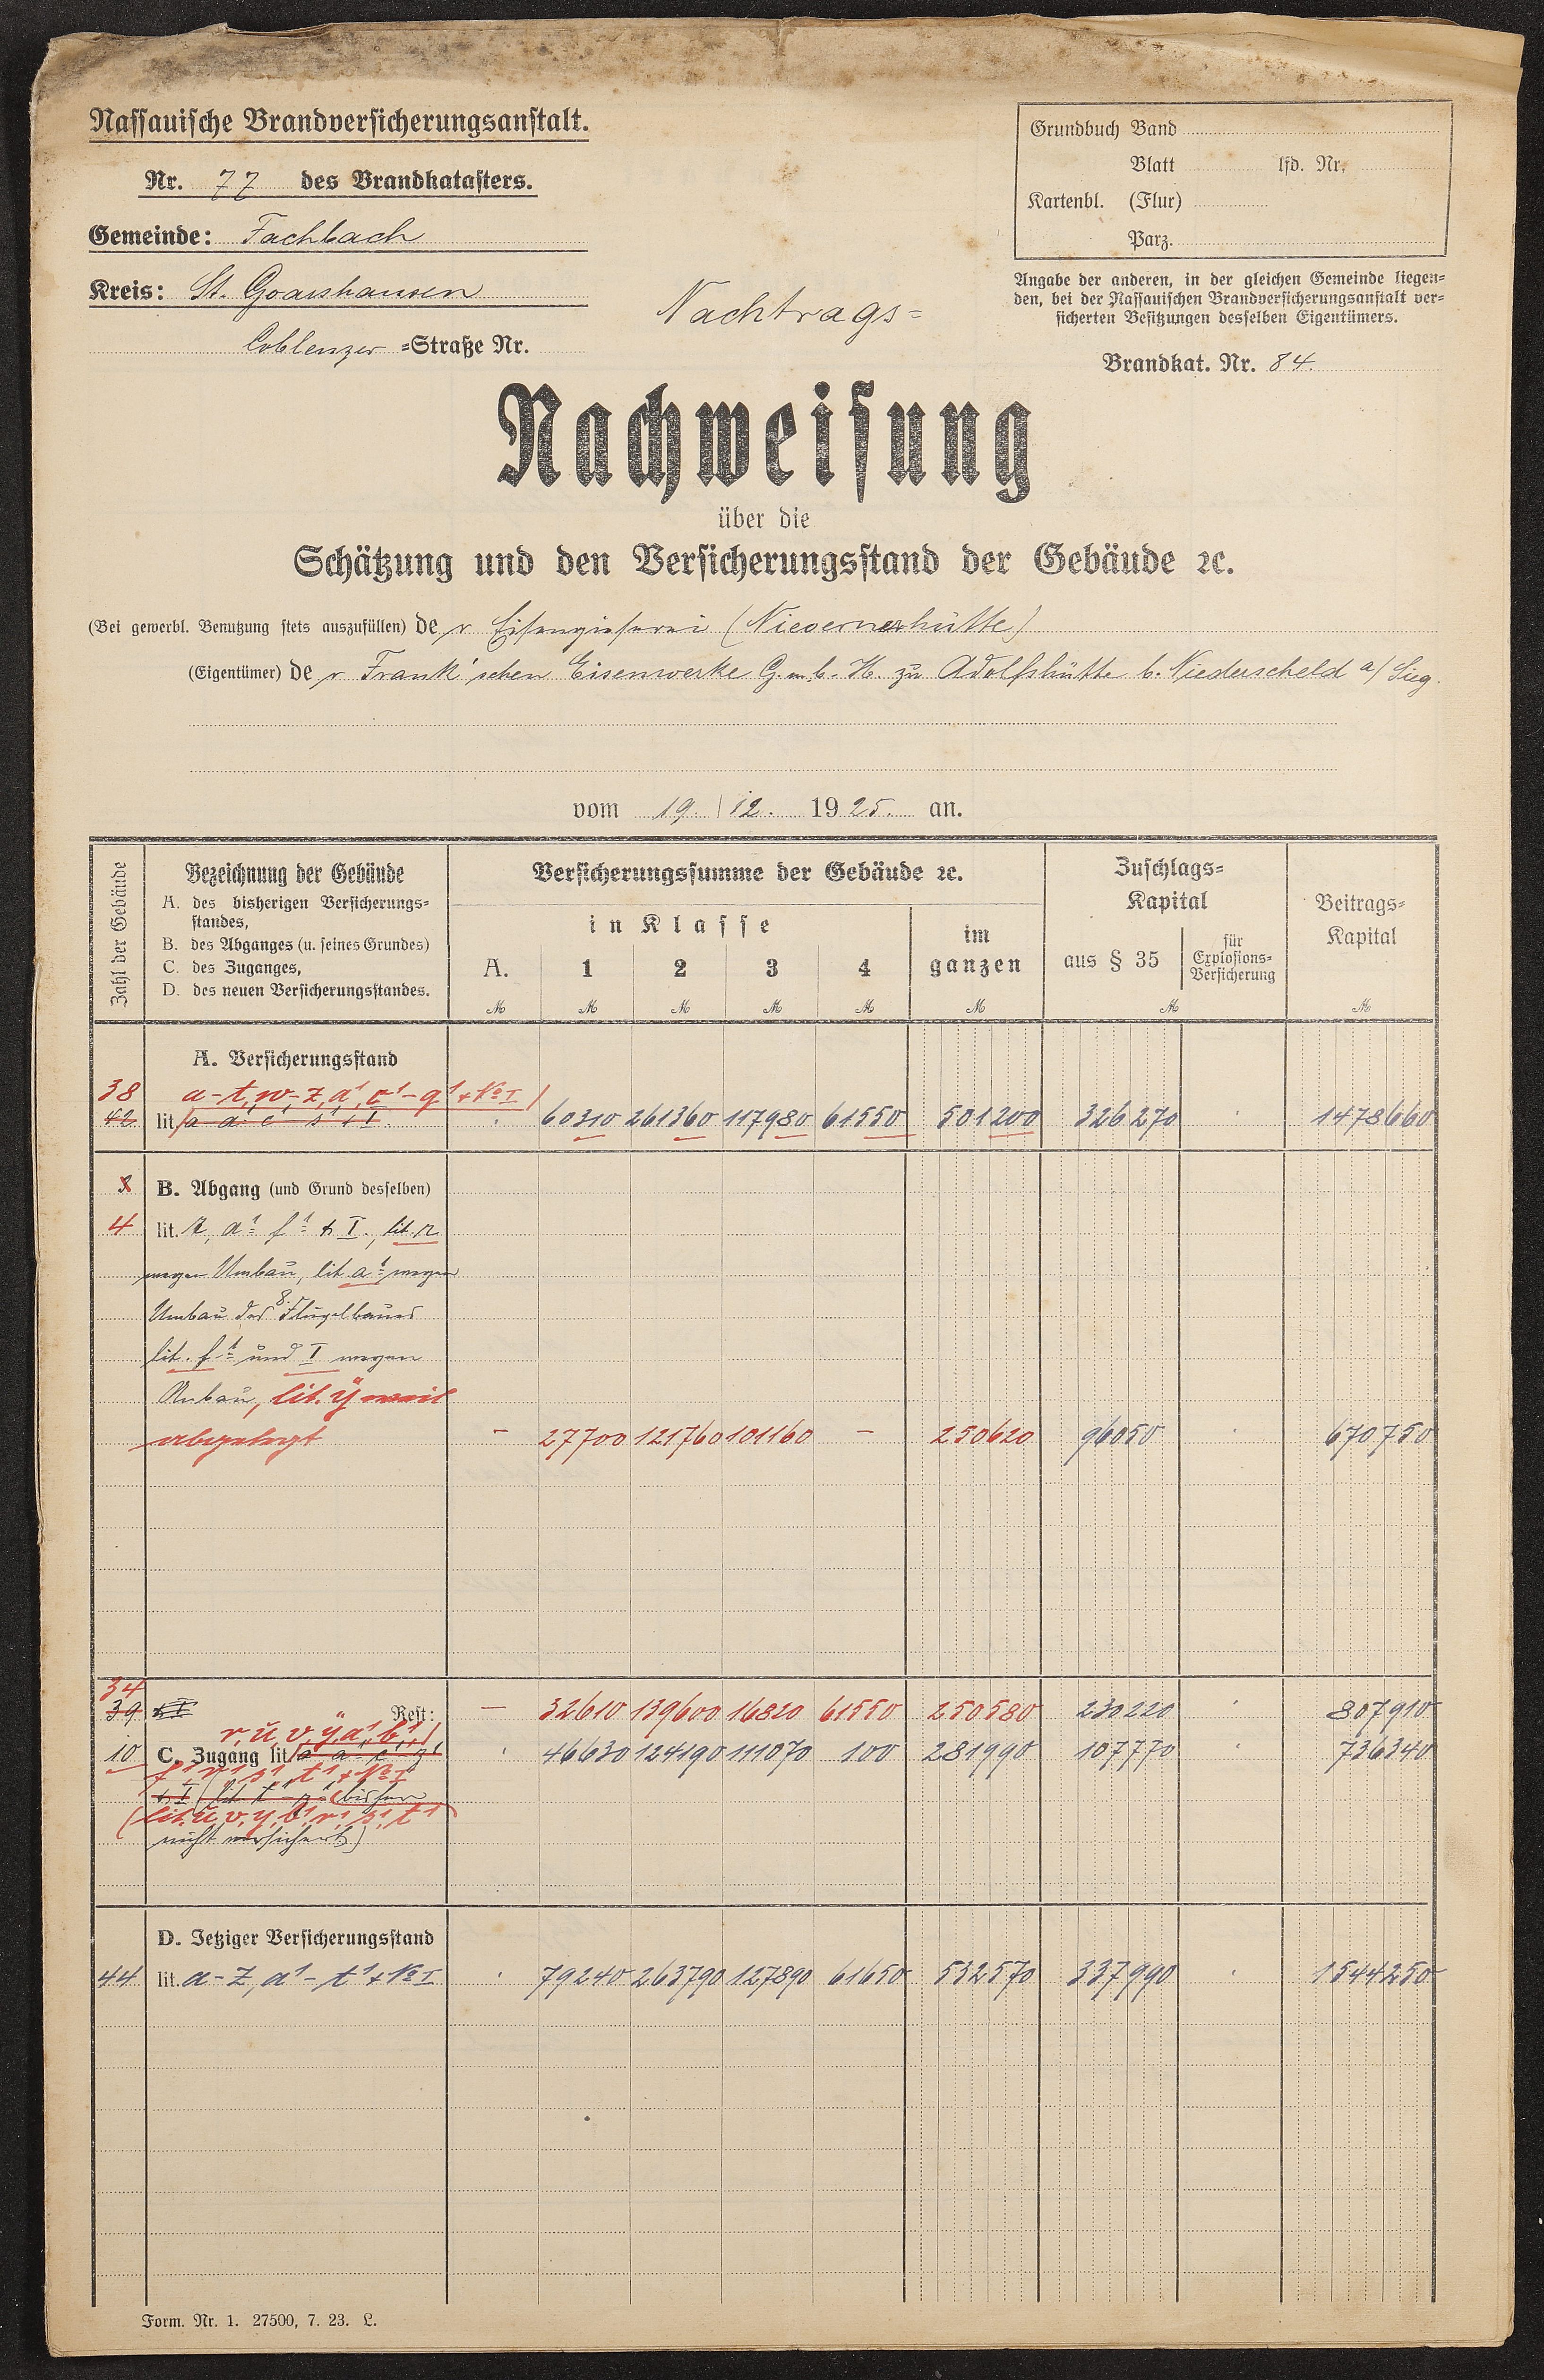 Nassauische Brandversicherungsanstalt.
Nr. 77 des Brandkatasters.
Gemeinde: Fachbach
Kreis: St. Goarshausen
Coblenzer =Straße Nr.
Grundbuch Band
Blatt lfd. Nr.
Kartenbl. (Flur)
Parz.
Angabe der anderen, in der gleichen Gemeinde liegen=
den, bei der Nassauischen Brandversicherungsanstalt ver=
sicherten Besitzungen desselben Eigentümers.
Brandkat. Nr. 84.
Nachtrags=
Nachweisung
über die
Schätzung und den Versicherungsstand der Gebäude ꝛc.
(Bei gewerbl. Benutzung stets auszufüllen) de r Eisengießerei (Nievernerhütte)
(Eigentümer) de r Frank'schen Eisenwerke G.m.b.H. zu Adolfshütte b. Niederscheld a/ Sieg.
vom 19. 12. 1925. an.
Zahl der Gebäude
Bezeichnung der Gebäude
A. des bisherigen Versicherungs=
standes,
B. des Abganges (u. seines Grundes)
C. des Zuganges,
D. des neuen Versicherungsstandes.
Versicherungssumme der Gebäude ꝛc.
in Klasse
A. 1 2 3 4
im
ganzen
Zuschlags=
Kapital
aus § 35
für
Explosions=
Versicherung
Beitrags=
Kapital
ℳ ℳ ℳ ℳ ℳ ℳ ℳ ℳ
A. Versicherungsstand
38 a-t, w-z, a¹, c¹-q¹ + No I
42 lit. 60310 261360 117980 61550 501200 326270 1478660
B. Abgang (und Grund desselben)
4 lit. r, a¹ f¹ & I., lit. r
wegen Umbau, lit. a¹ wegen
Umbau des Flügelbaues
lit. f¹ und I wegen
Anbau, lit. ÿ weil
abgelegt - 27700 121760 101160 - 250620 96050 670750
34
39 & I Rest: - 32610 139600 16820 61550 250580 230220 807910
r, u, v, ÿ, a¹, b¹,
10 C. Zugang lit. 46630 124190 111070 100 281990 107770 736340
f¹ r¹ s¹ t¹ + No I
& I bisher
(lit. u, v, y, b¹, r¹, s¹, t¹
nicht versichert)
D. Jetziger Versicherungsstand
44 lit. a-z, a¹-t¹ + No I 79240 263790 127890 61650 532570 337990 1544250
Form. Nr. 1. 27500, 7. 23. L.